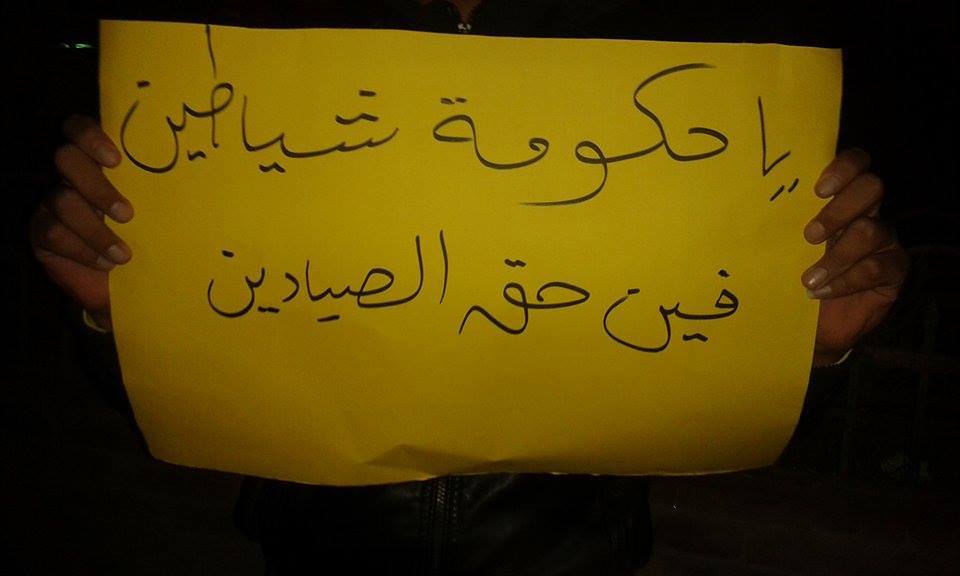 يا حكومة شياطين
فين حق الصيادين